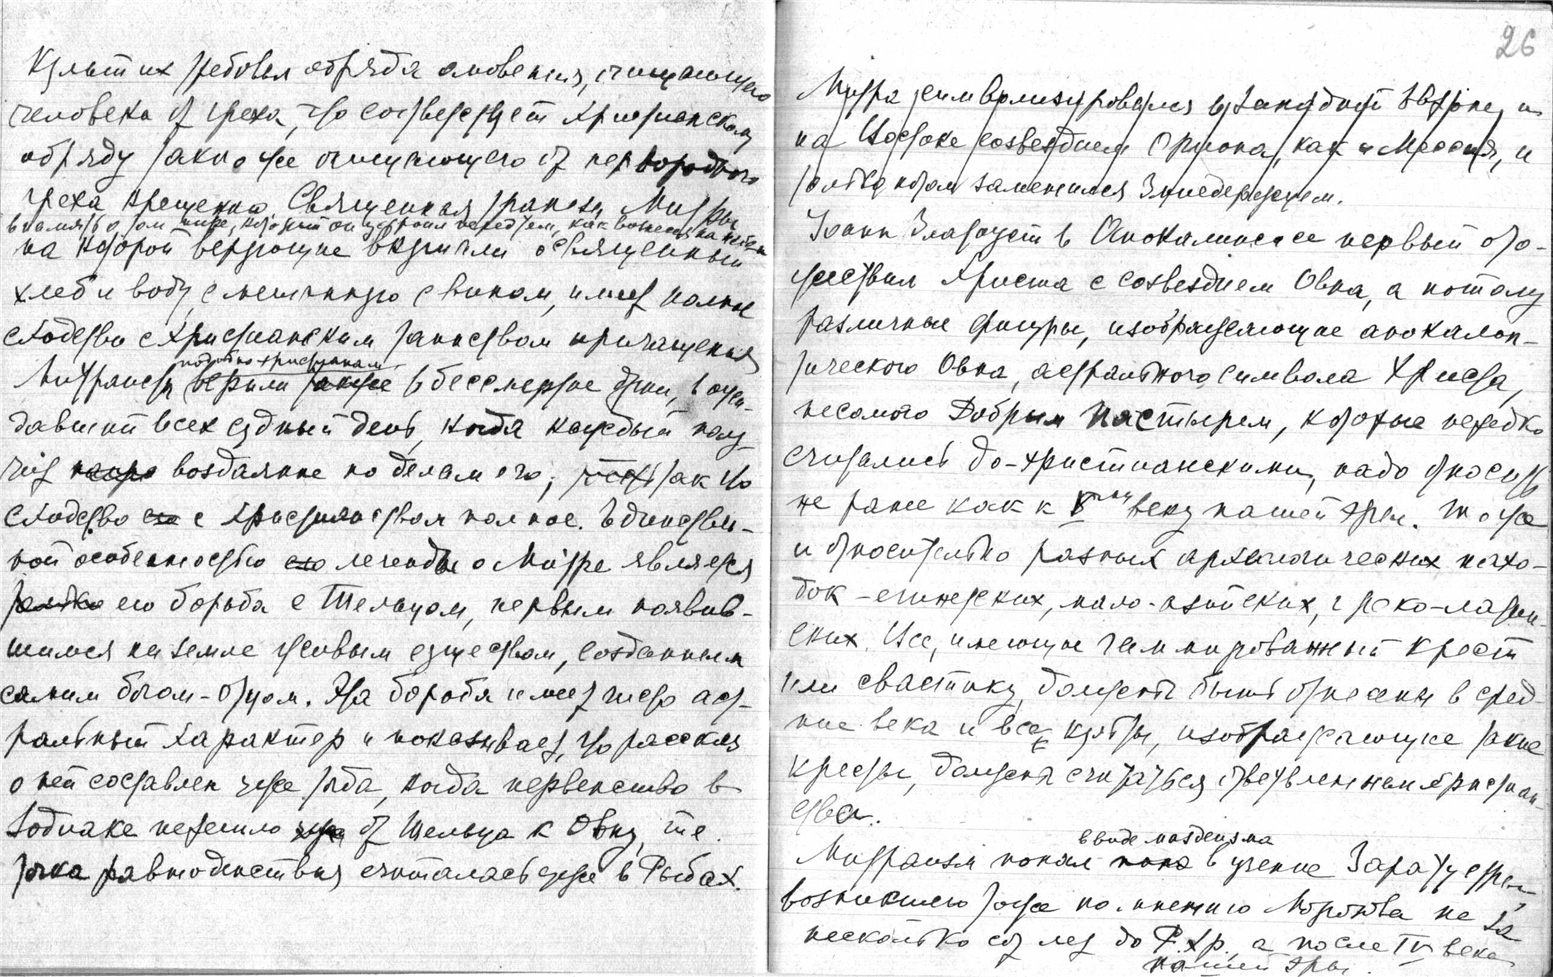 Культ их требовал обряда омовения, очищающего
человека от греха, что соответствует христианскому
обряду также очищающего от первородного
греха крещению Священная трапеза Митры
в память о том пире, который он устроил перед тем, как вознестись на небеса
на которой верующие вкушали освященный
хлеб и воду, смешанную с вином, имеет полное
сходство с христианским таинством причащения
подобно христианам
Митраисты верили также в бессмертие души, в ожи-
давший всех судный день, когда каждый полу-
чит воздаяние по делам его; так что
сходство с христианством полное. Единствен-
ной особенностью легенды о Митре является
только его борьба с Тельцом, первым появив-
шимся на земле живым существом, созданным
самим богом-отцом. Эта борьба имеет чисто аст-
ральный характер и показывает, что рассказ
о ней составлен уже тогда, когда первенство в
Зодиаке перешло от Тельца к Овну, т.е.
точка равноденствия считалась уже в Рыбах.
26
Митра символизировался в Западной Европе и
на Востоке созвездием Ориона, как и Мессия, и
только потом заменился Змиедержцем.
Иоанн Златоуст в Апокалипсисе первый ото-
жествил Христа с созвездием Овна, а потому
различные фигуры, изображающие апокалип-
тического Овна, астрального символа Христа,
несомого Добрым Пастырем, которые нередко
считались до-христианскими, надо относить
не ранее как к V веку нашей эры. То же
и относительно разных археологических нахо-
док - египетских, мало-азийских, греко-латин-
ских. Все, имеющие геммированный крест
или свастику, должны быть отнесены в сред-
ние века и все культы, изображающие такие
кресты, должны считаться ответвлениями христиан-
ства.
в виде маздеизма
Митраизм попал в учение Заратустры
возникшего тоже по мнению Морозова не за
несколько сот лет до Р.Хр., а после IV века
нашей эры.